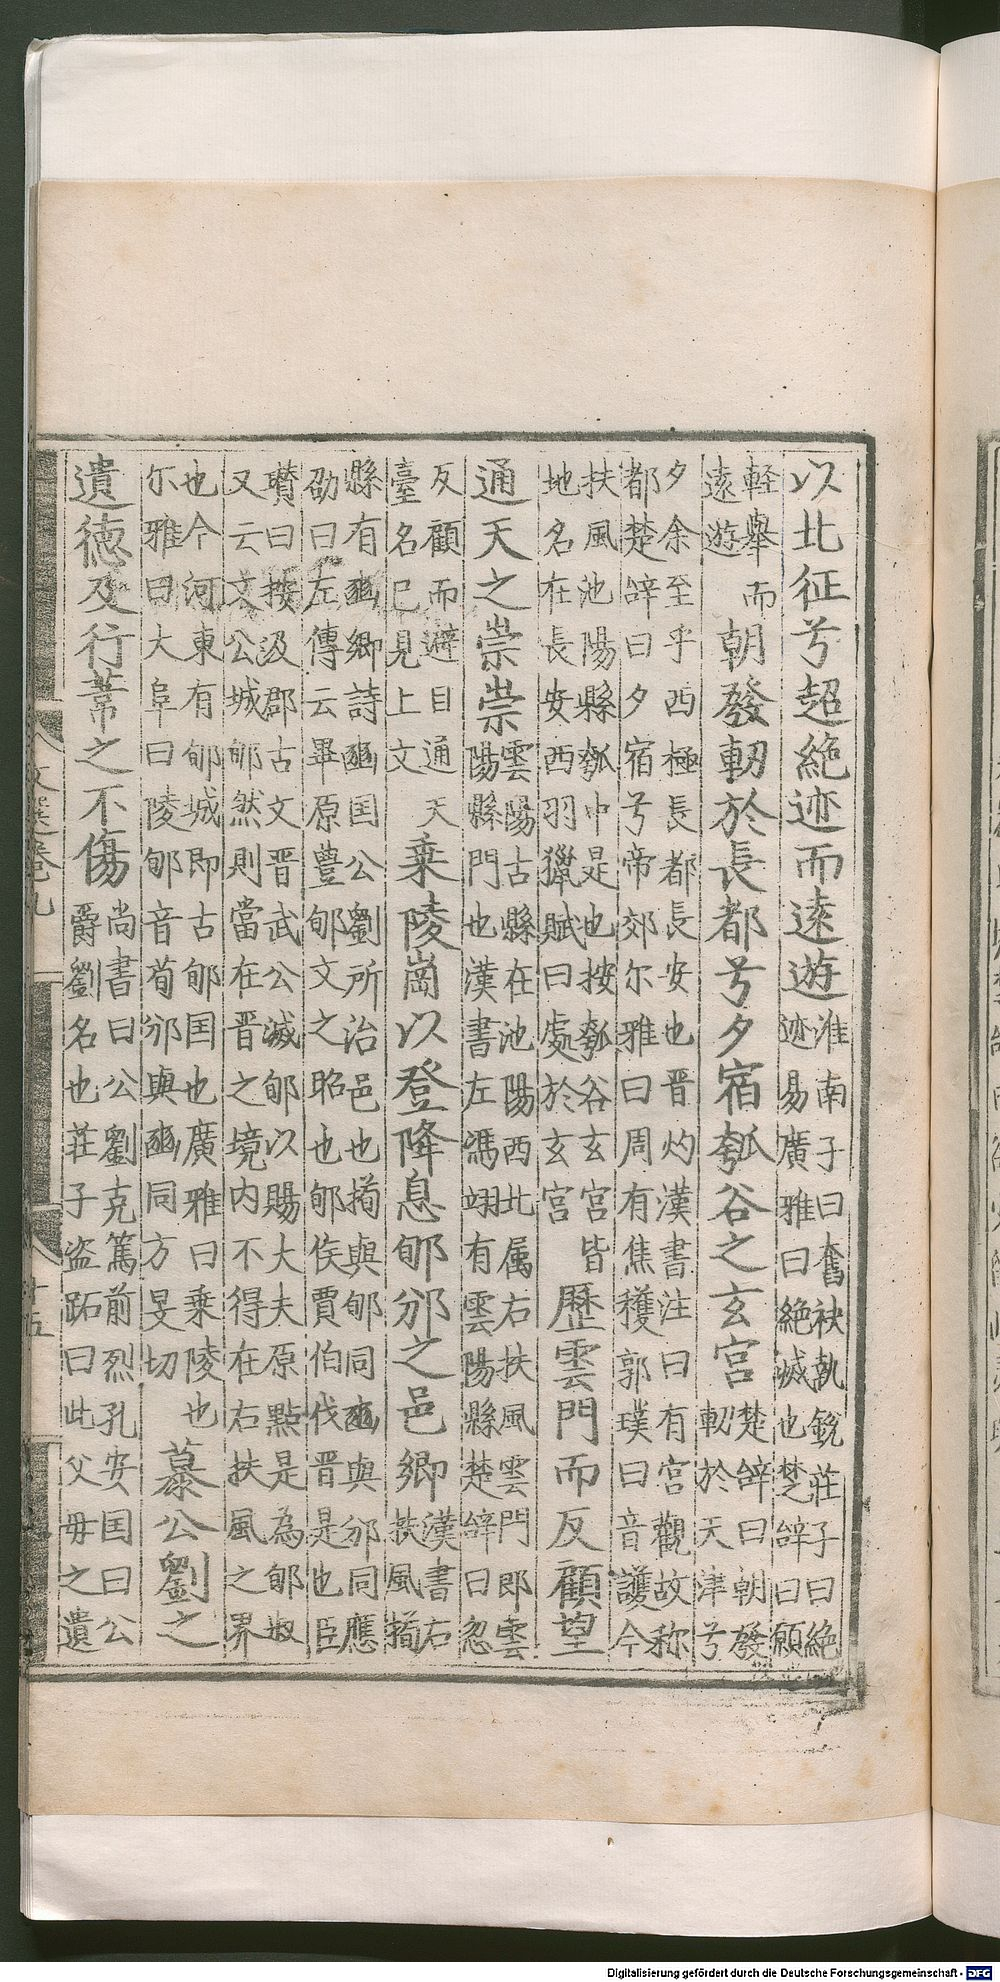 以北征兮超絶迹而遠遊淮南子曰奮袂執銳莊子曰絶
迹易廣雅曰絶滅也楚辝曰願
軽舉
遠遊而朝發軔於長都兮夕宿瓠谷之玄宮楚辝曰朝發
軔於天津兮
夕余至乎西極長都長安也晋灼漢書注曰有宮觀故称
都楚辝曰夕宿兮帝郊尔雅曰周有焦穫郭璞曰音護今
扶風池陽縣瓠中是也按瓠谷玄宮皆
地名在長安西羽獵賦曰處於玄宮歷雲門而反顧望
通天之崇崇雲陽古縣在池陽西北属右扶風雲門郎雲
陽縣門也漢書左馮翊有雲陽縣楚辝曰忽
反顧而遊目通天
臺名已見上文乗陵崗以登降息郇邠之邑鄉漢書右
扶風栒
縣有豳鄉詩豳国公劉所治邑也栒與郇同豳與邠同應
劭曰左傳云畢原豊郇文之昭也郇侯賈伯伐晋是也臣
瓚曰按汲郡古文晋武公滅郇以賜大夫原黯是為郇叔
又云文公城郇然則當在晋之境内不得在右扶風之界
也今河東有郇城即古郇国也廣雅曰乗陵也
尔雅曰大阜曰陵郇音荀邠與豳同方旻切慕公劉之
遺徳及行葦之不傷尚書曰公劉克篤前烈孔安国曰公
爵劉名也莊子盗跖曰此父毋之遺
文選卷九
十五
Digitalisierung gefördert durch die Deutsche Forschungsgemeinschaft - DFG